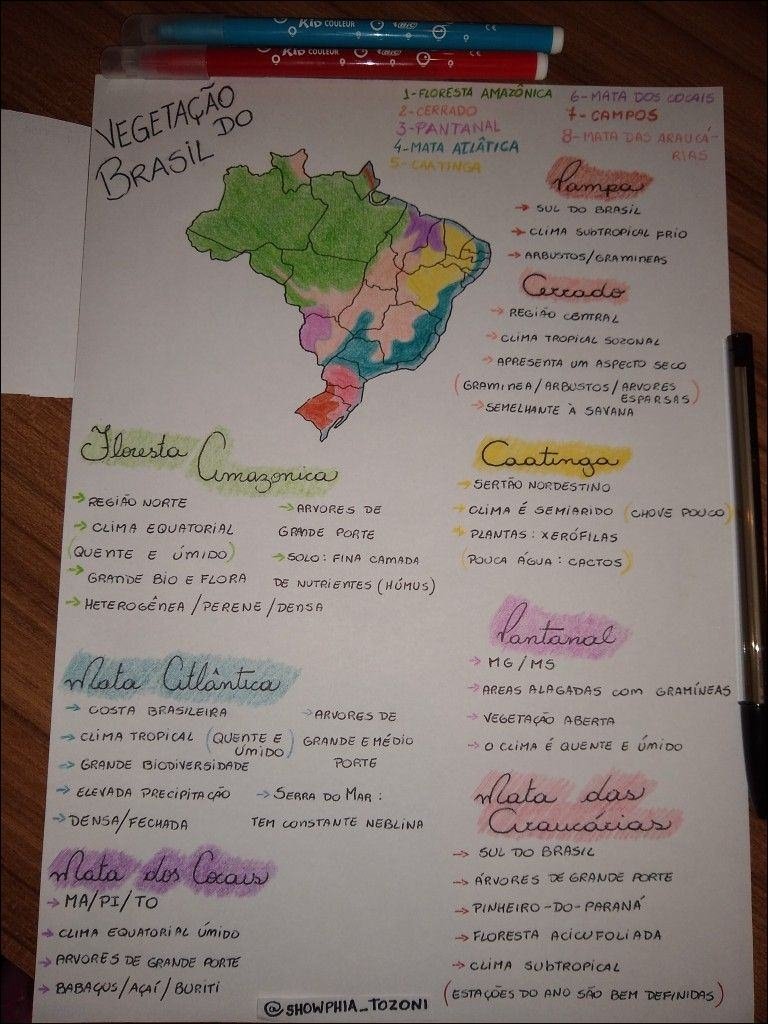 KID COULEUR
KID COULEUR
VEGETAÇÃO
DO
BRASIL
1-FLORESTA AMAZÔNICA
2-CERRADO
3-PANTANAL
4-MATA ATLÂTICA
5-CAATINGA
6-MATA DOS COCAIS
7-CAMPOS
8-MATA DAS ARAUCÁ-
RIAS
Pampa
→ SUL DO BRASIL
→ CLIMA SUBTROPICAL FRIO
→ ARBUSTOS/GRAMINEAS
Cerrado
→ REGIÃO CENTRAL
→ CLIMA TROPICAL SOZONAL
→ APRESENTA UM ASPECTO SECO
(GRAMINEA/ARBUSTOS/ARVORES
ESPARSAS)
→ SEMELHANTE À SAVANA
Floresta
Amazonica
→ REGIÃO NORTE
→ CLIMA EQUATORIAL
(QUENTE E ÚMIDO)
→ GRANDE BIO E FLORA
→ HETEROGÊNEA/PERENE/DENSA
→ ARVORES DE
GRANDE PORTE
→ SOLO: FINA CAMADA
DE NUTRIENTES (HÚMUS)
Caatinga
→ SERTÃO NORDESTINO
→ CLIMA É SEMIARIDO (CHOVE POUCO)
→ PLANTAS: XERÓFILAS
(POUCA ÁGUA: CACTOS)
Mata Atlântica
→ COSTA BRASILEIRA
→ CLIMA TROPICAL (QUENTE E
ÚMIDO)
→ GRANDE BIODIVERSIDADE
→ ELEVADA PRECIPITAÇÃO
→ DENSA/FECHADA
→ ARVORES DE
GRANDE E MÉDIO
PORTE
→ SERRA DO MAR:
TEM CONSTANTE NEBLINA
Pantanal
→ MG/MS
→ AREAS ALAGADAS COM GRAMÍNEAS
→ VEGETAÇÃO ABERTA
→ O CLIMA É QUENTE E ÚMIDO
Mata dos Cocais
→ MA/PI/TO
→ CLIMA EQUATORIAL ÚMIDO
→ ARVORES DE GRANDE PORTE
→ BABAÇUS/AÇAÍ/BURITI
Mata das
Araucárias
→ SUL DO BRASIL
→ ÁRVORES DE GRANDE PORTE
→ PINHEIRO-DO-PARANÁ
→ FLORESTA ACICUFOLIADA
→ CLIMA SUBTROPICAL
(ESTAÇÕES DO ANO SÃO BEM DEFINIDAS)
@SHOWPHIA_TOZONI